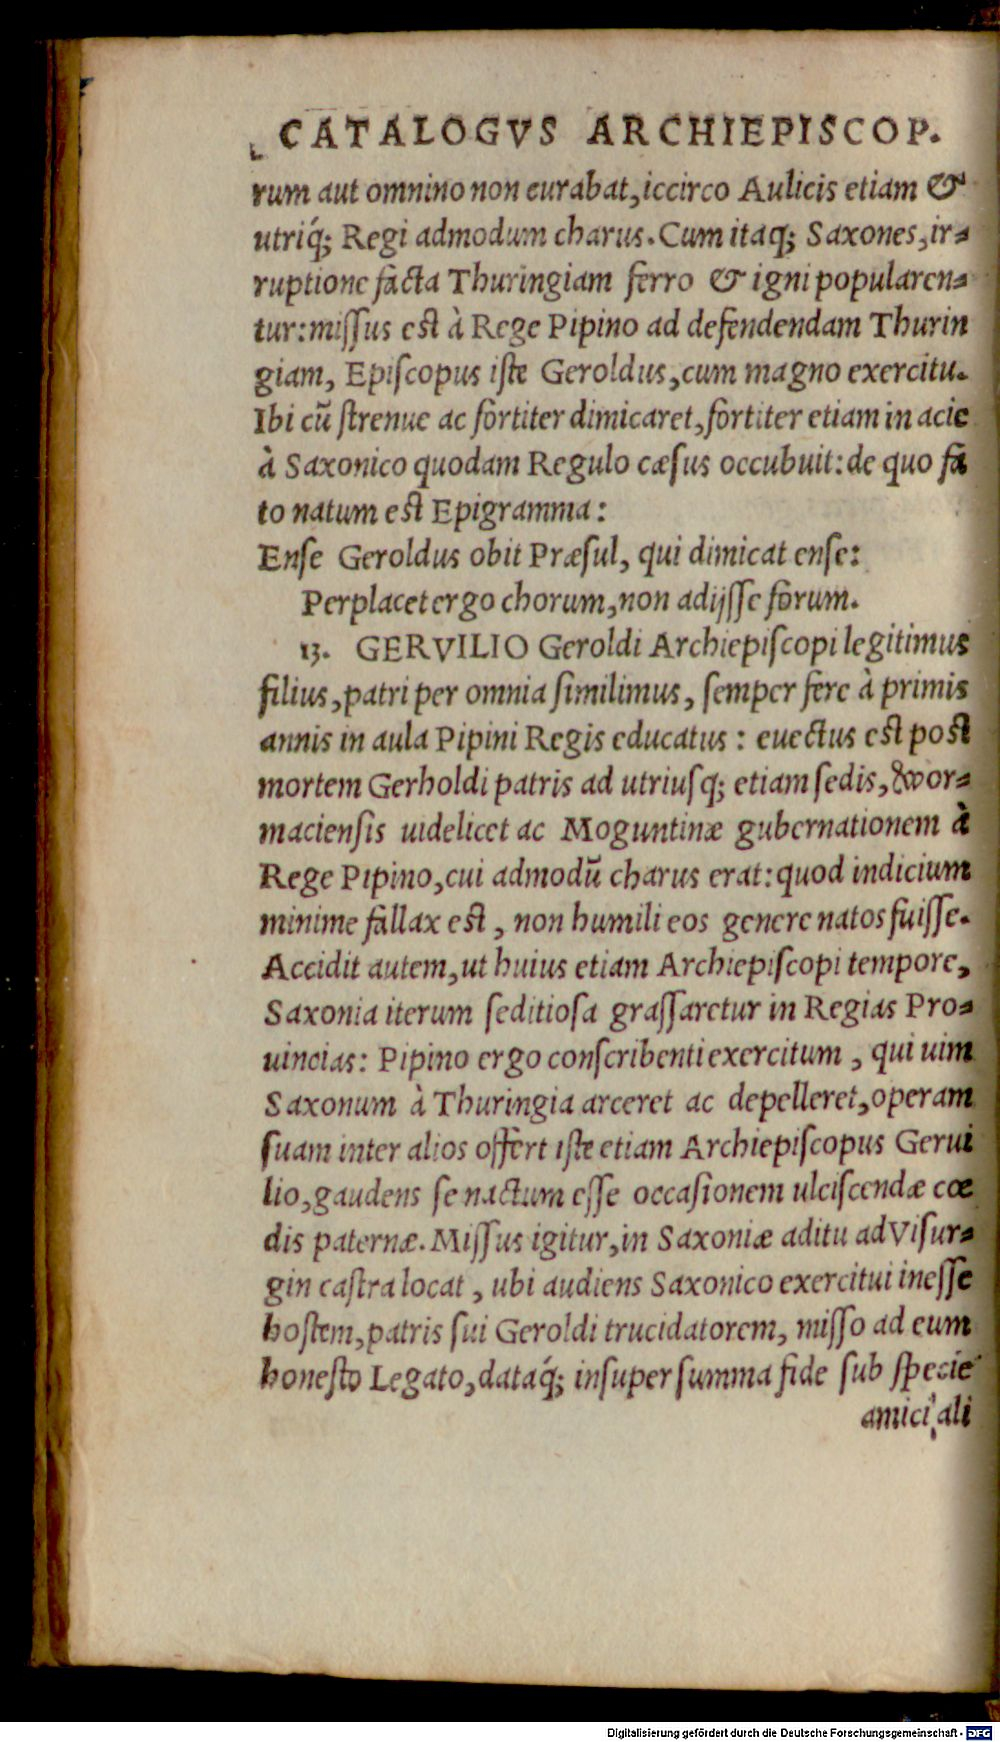 CATALOGVS ARCHIEPISCOP.
rum aut omnino non curabat, iccirco Aulicis etiam &
utriq́; Regi admodum charus. Cum itaq; Saxones, ir-
ruptione facta Thuringiam ferro & igni popularen-
tur: miſſus eſt à Rege Pipino ad defendendam Thurin
giam, Epiſcopus iſte Geroldus, cum magno exercitu.
Ibi cũ ſtrenue ac fortiter dimicaret, fortiter etiam in acie
à Saxonico quodam Regulo cæſus occubuit: de quo fa
to natum eſt Epigramma:
Enſe Geroldus obit Præſul, qui dimicat enſe:
Perplacet ergo chorum, non adijſſe forum.
13. GERVILIO Geroldi Archiepiſcopi legitimus
filius, patri per omnia ſimilimus, ſemper fere à primis
annis in aula Pipini Regis educatus: euectus eſt poſt
mortem Gerholdi patris ad utriuſq; etiam ſedis, &wor-
macienſis uidelicet ac Moguntinæ gubernationem à
Rege Pipino, cui admodũ charus erat: quod indicium
minime fallax eſt, non humili eos genere natos fuiſſe.
Accidit autem, ut huius etiam Archiepiſcopi tempore,
Saxonia iterum ſeditioſa graſſaretur in Regias Pro-
uincias: Pipino ergo conſcribenti exercitum, qui uim
Saxonum à Thuringia arceret ac depelleret, operam
ſuam inter alios offert iſte etiam Archiepiſcopus Gerui
lio, gaudens ſe nactum eſſe occaſionem ulciſcendæ cœ
dis paternæ. Miſſus igitur, in Saxoniæ aditu ad Viſur-
gin caſtra locat, ubi audiens Saxonico exercitui ineſſe
hoſtem, patris ſui Geroldi trucidatorem, miſſo ad eum
honeſto Legato, dataq́; inſuper ſumma fide ſub ſpecie
amici, ali
Digitalisierung gefördert durch die Deutsche Forschungsgemeinschaft - DFG